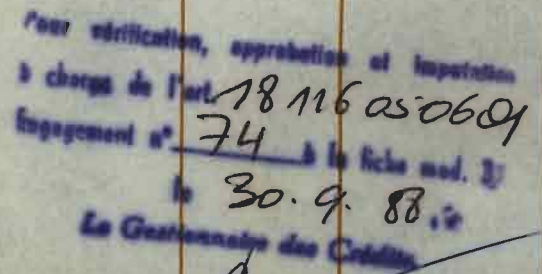 Pour vérification, approbation et imputation
à charge de l'art. 18 116 05 0601
Engagement n° 74 à la fiche mod. 3
le 30. 9. 88.
Le Gestionnaire des Crédits